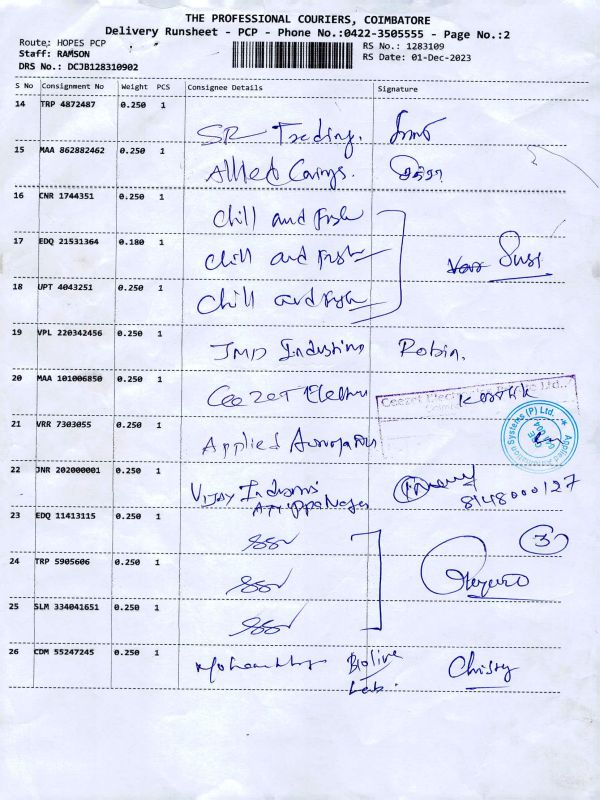 THE PROFESSIONAL COURIERS, COIMBATORE
Delivery Runsheet - PCP - Phone No.:0422-3505555 - Page No.:2
Route: HOPES PCP
Staff: RAMSON
DRS No.: DCJB128310902
RS No.: 1283109
RS Date: 01-Dec-2023
S No Consignment No Weight PCS Consignee Details Signature
14 TRP 4872487 0.250 1
SR Trading.
15 MAA 862882462 0.250 1
Allied
16 CNR 1744351 0.250 1
Chill and Fish
17 EDQ 21531364 0.180 1
Chill and Fish
Susi
18 UPT 4043251 0.250 1
Chill and Fish
19 VPL 220342456 0.250 1
JMD Industries Robin.
20 MAA 101006850 0.250 1
Ceezet Electro
Ceezet
Karthik
21 VRR 7303055 0.250 1
Applied Automation
Systems (P) Ltd.
22 JNR 202000001 0.250 1
Vijay
8148000127
23 EDQ 11413115 0.250 1
SSV
3
24 TRP 5905606 0.250 1
SSV
25 SLM 334041651 0.250 1
SSV
26 CDM 55247245 0.250 1
Biolive Christy
Lab.